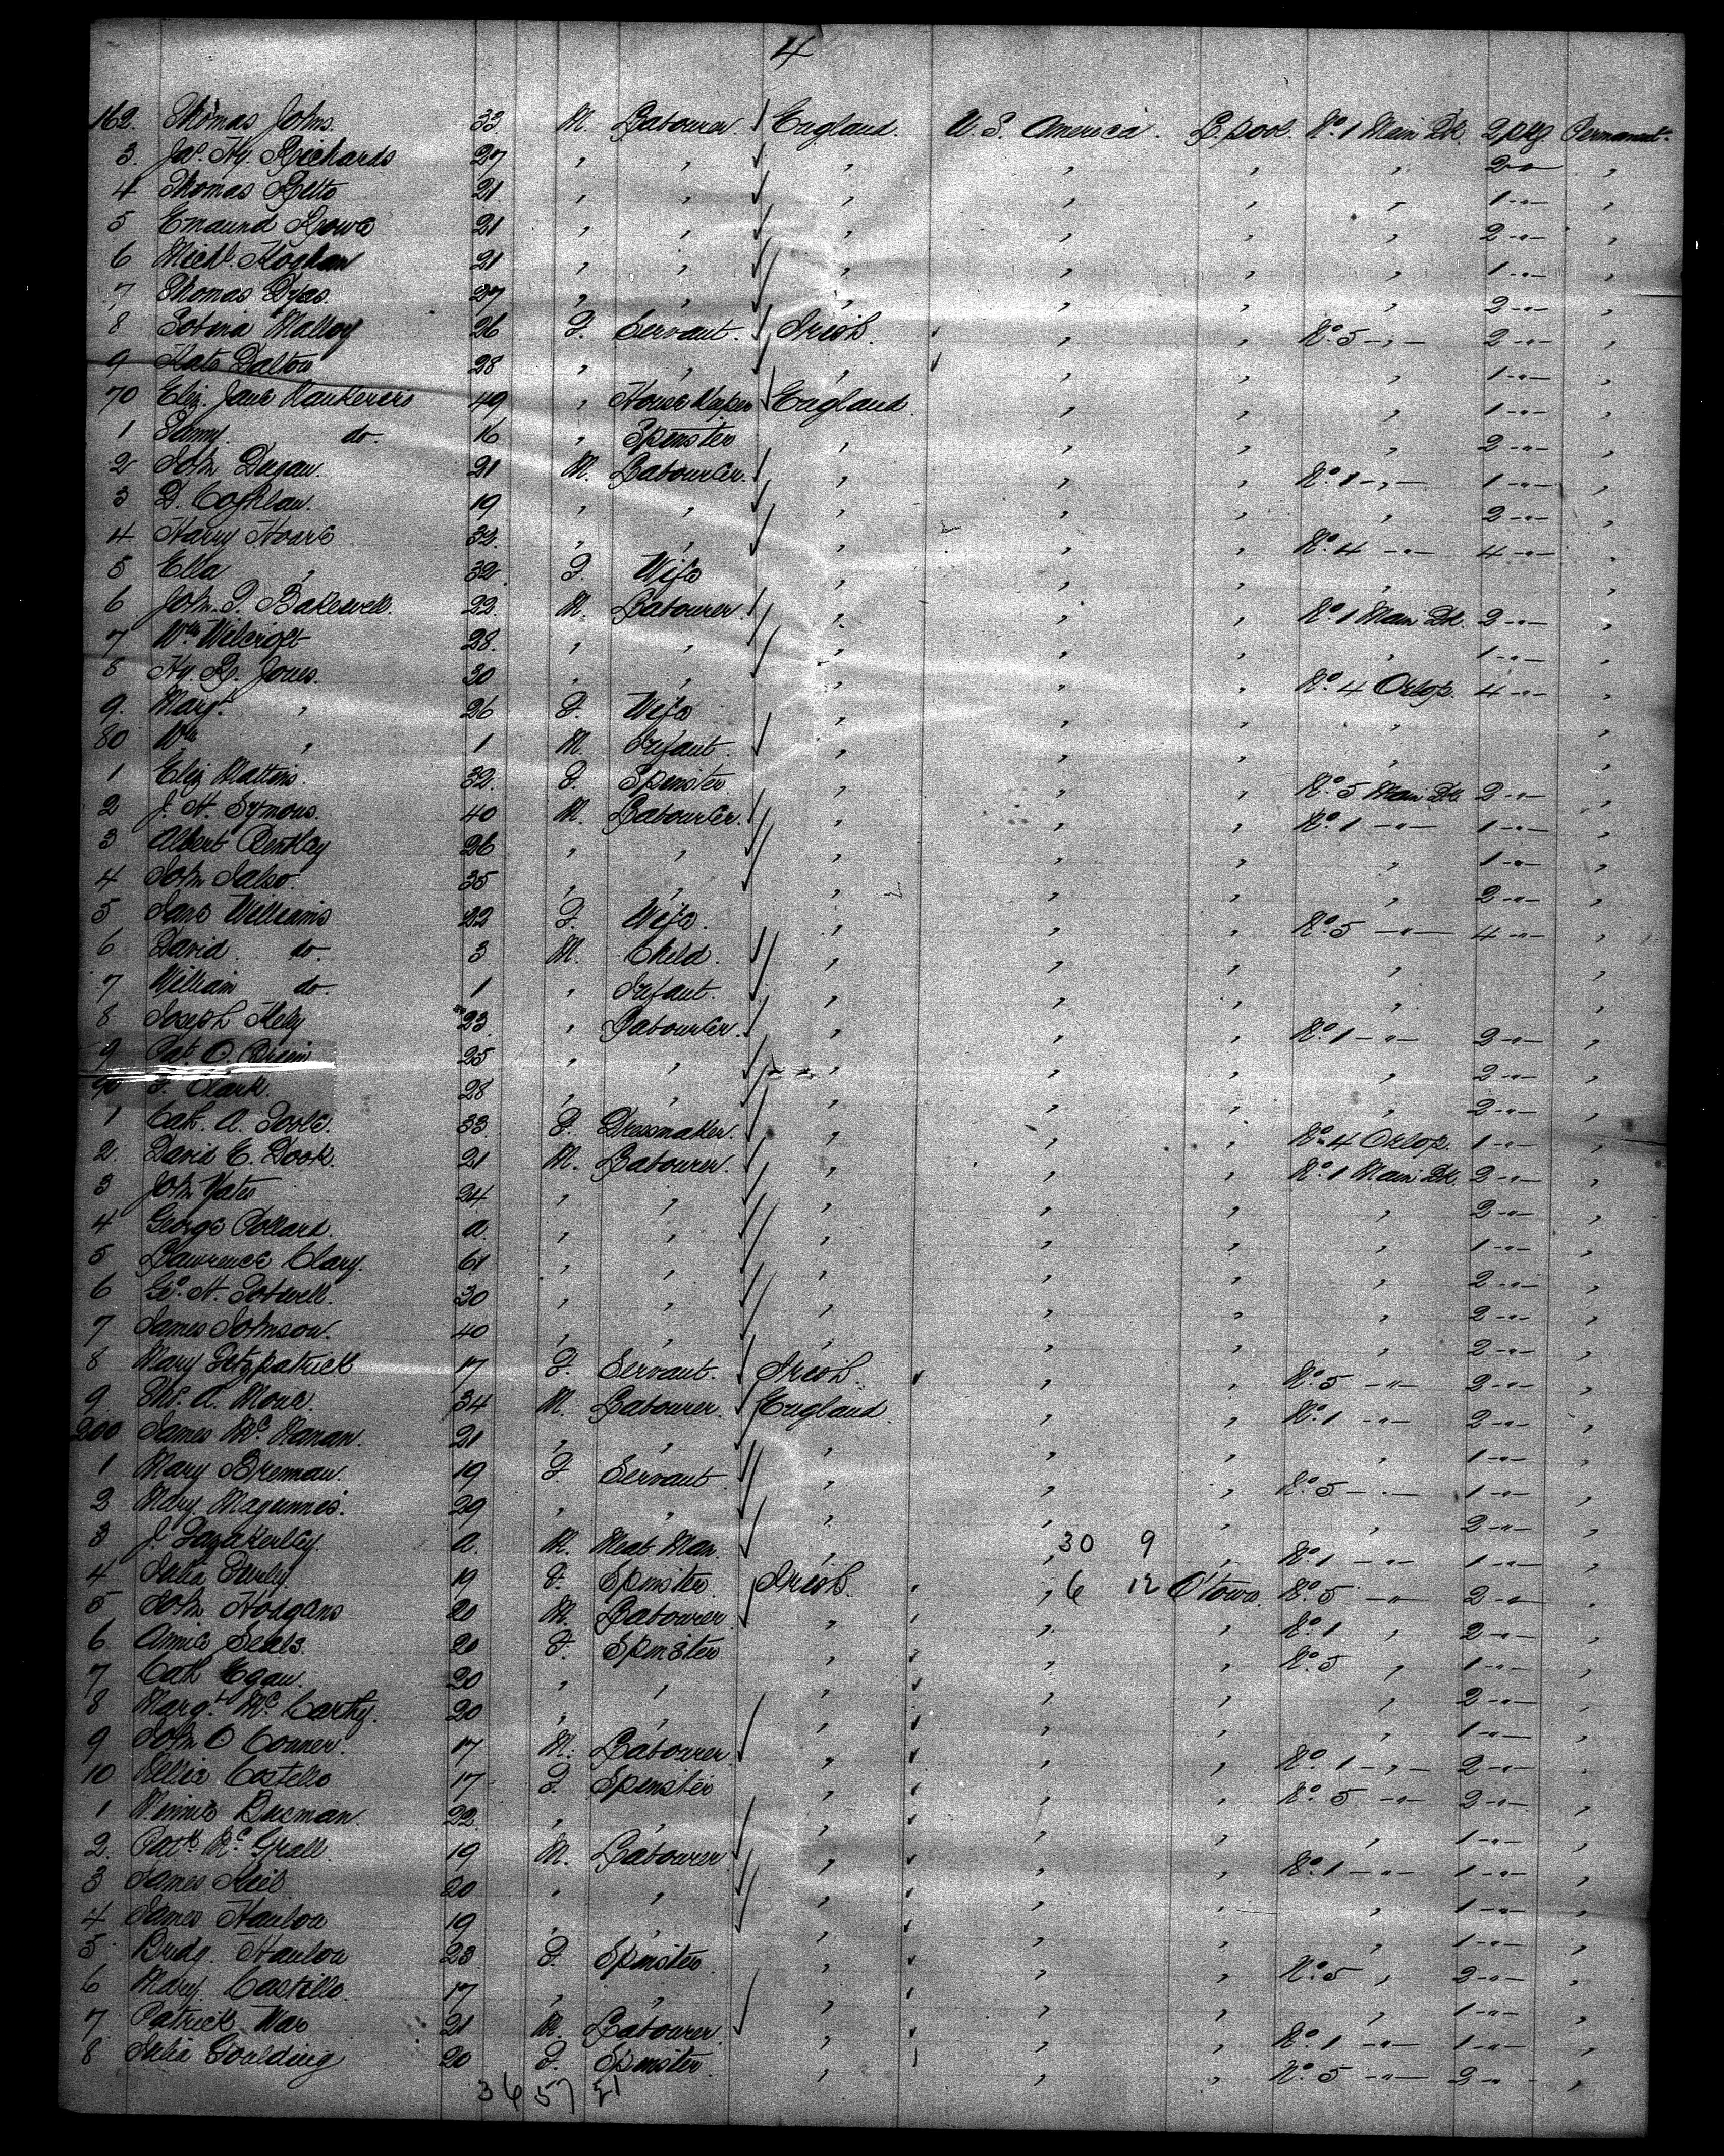 4
162. Thomas Johns. 33 M. Labourer. England. U S. America. L.pool. No. 1 Main Dk. 2 pkg Permanent
3. Jas. Hy. Richards 27 " " " " " " 2 -"- "
4 Thomas 21 " " " " " " 1 -"- "
5 Edmund Rowe 21 " " " " " " 2 -"- "
6 Michl. Hoghan 21 " " " " " " 1 -"- "
7 Thomas Dyas. 27 " " " " " " 2 -"- "
8 Malloy 26 F. Servant. Irish. " " No. 5 -"- 2 -"- "
9 Kate Dalton 28 " " " " " " 1 -"- "
70 Eliz. Jane 49 " House Keeper England. " " " 1 -"- "
1 Fanny. do. 16 " Spinster " " " " 2 -"- "
2 John Dagan. 21 M. Labourer. " " " No. 1 -"- 1 -"- "
3 D. Coghlan. 19 " " " " " " 2 -"- "
4 Harry Hoare 32. " " " " " No. 4 -"- 4 -"- "
5 Ella " 32 F. Wife " " " "
6 John. T. Bakewell. 22. M. Labourer. " " " No. 1 Main Dk. 2 -"- "
7 Wm Welcroft 28. " " " " " " 1 -"- "
8 Hy. R. Jones. 30 " " " " " No. 4 Orlop. 4 -"- "
9. Margt. " 26 F. Wife " " " " "
80 Wm " 1 M. Infant. " " " " "
1 Eliz Mattins. 32. F. Spinster. " " " No. 5 Main Dk 2 -"- "
2 J. H. Symons. 40 M. Labourer. " " " No. 1 -"- 1 -"- "
3 Albert Bentley 26 " " " " " " 1 -"- "
4 John Salso. 35 " " " " " " 2 -"- "
5 Jane Williams 22 F. Wife. " " " No. 5 -"- 4 -"- "
6 David. do. 3 M. Child. " " " " "
7 William do. 1 " Infant. " " " " "
8 Joseph Kely 23. " Labourer. " " " No. 1 -"- 2 -"- "
9 Pat. O. Briein 25 " " " " " " 2 -"- "
90 F. Clark. 28 " " " " " " 2 -"- "
1 Cath. A. Toole. 33. F. Dressmaker. " " " No. 4 Orlop. 1 -"- "
2. David E. Dook. 21 M. Labourer. " " " No. 1 Main Dk. 2 -"- "
3 John Yates 24 " " " " " " 2 -"- "
4 George Pollard. a " " " " " " 1 -"- "
5 Lawrence Clary. 61 " " " " " " 2 -"- "
6 Geo. H. Totwell. 30 " " " " " " 2 -"- "
7 James Johnson. 40 " " " " " " 2 -"- "
8 Mary Fitzpatrick 17 F. Servant. Irish. " " No. 5 -"- 2 -"- "
9. Ths. A. Mona. 34 M. Labourer. England. " " No. 1 -"- 2 -"- "
200 James Mc. Manan. 21 " " " " " " 1 -"- "
1 Mary Brennan. 19 F. Servant. " " " No. 5 -"- 1 -"- "
2 Mary. Magunnis. 29 " " " " " " 2 -"- "
3 J. Fazakerley. a. M. Meat Man. " " 30 9 " No. 1 -"- 1 -"- "
4 Julia 19 F. Spinster. Irish. " 6 12 Q'town. No. 5 -"- 2 -"- "
5 John Hodgans 20 M. Labourer. " " " No. 1 " 2 -"- "
6 Annie Seals. 20 F. Spinster " " " No. 5 " 1 -"- "
7 Cath Egan. 20 " " " " " " 2 -"- "
8 Margt. Mc. Carthy. 20 " " " " " " 1 -"- "
9 John O Conner. 17 M. Labourer. " " " No. 1 -"- 2 -"- "
10 Nellie Costello 17 F. Spinster " " " No. 5 -"- 2 -"- "
1 Winnie 22. " " " " " " 1 -"- "
2. Patk. Mc. Grall. 19 M. Labourer. " " " No. 1 -"- 1 -"- "
3 James 20 " " " " " " 1 -"- "
4 James Hanlon 19 " " " " " " 1 -"- "
5 Bridg. Hanlon 23 F. Spinster. " " " No. 5 " 2 -"- "
6 Mary. Castello. 17 " " " " " " 1 -"- "
7 Patrick War 21 M. Labourer. " " " No. 1 -"- 1 -"- "
8 Julia Goulding 20 F. Spinster. " " " No. 5 -"- 2 -"- "
36 57 21